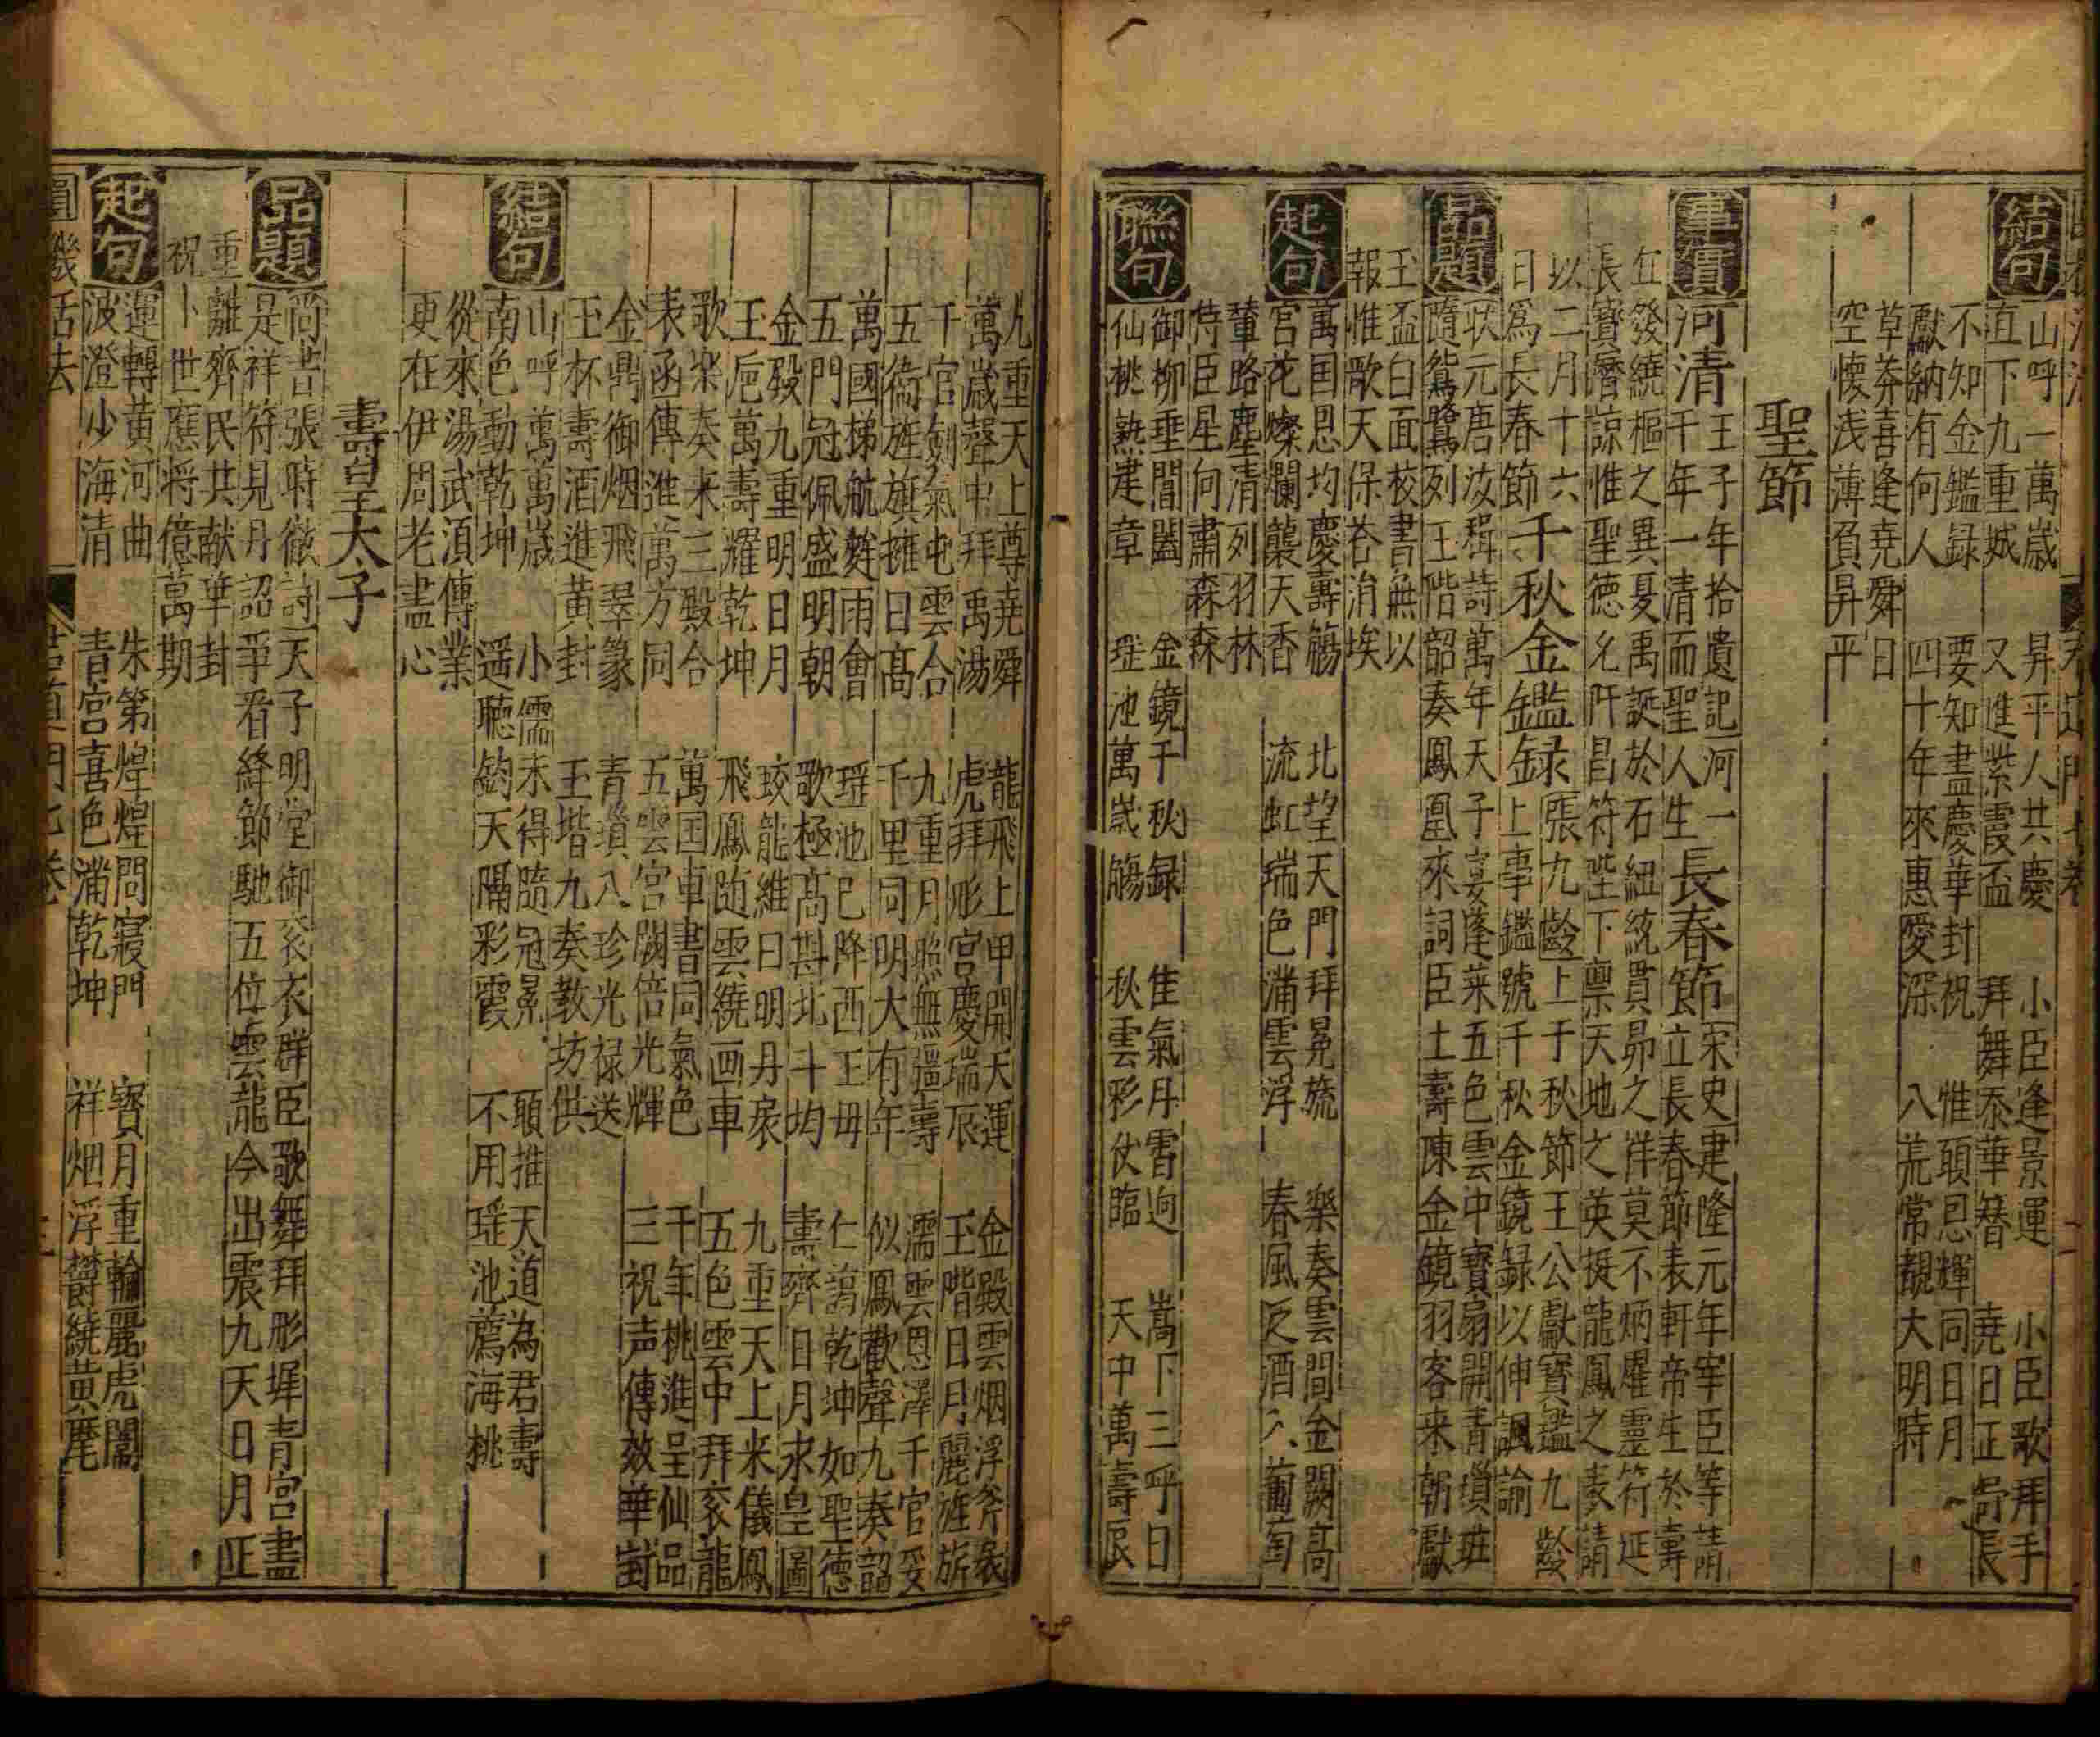 結句
山呼一萬歲　昇平人共慶　小臣逢景運　小臣歌拜手
直下九重城　又進紫霞盃　拜舞忝華簪　堯日正舒長
不知金鑑録　要知盡慶華封祝　惟願恩輝同日月
獻納有何人　四十年來惠愛深　八荒常覩大明時
草莽喜逢堯舜日
空懷浅薄負昇平
聖節
事實
河清
王子年拾遺記河一
千年一清而聖人生
長春節
宋史建隆元年宰臣等請
立長春節表軒帝生於壽
丘發繞樞之異夏禹誕於石紐統貫昴之祥莫不炳燿靈符延
長寶曆諒惟聖德允叶昌符陛下禀天地之英挺龍鳳之表請
以二月十六
日爲長春節
千秋金鑑録
張九齡上于秋節王公獻寶鑑九齡
上事鑑號千秋金鏡録以伸諷諭
品題
狀元唐汝楫詩萬年天子宴蓬萊五色雲中寶扇開青瑣班
隨鴛鷺列玉階韶奏鳳凰來詞臣上壽陳金鏡羽客來朝獻
玉盃白面校書無以
報惟歌天保荅消埃
起句
萬国恩均慶壽觴　北望天門拜冕旒　樂奏雲間金闕高
宮花燦爛襲天香　流虹瑞色滿雲浮　春風泛酒入葡萄
輦路塵清列羽林
侍臣星向肅森森
聯句
御柳垂閶闔　金鏡千秋録　佳氣丹霄逈　嵩下三呼日
仙桃熟建章　瑶池萬歲觴　秋雲彩仗臨　天中萬壽辰
九重天上尊堯舜　龍飛上甲開天運　金殿雲烟浮斧扆
萬歲聲中拜禹湯　虎拜彤宮慶瑞辰　玉階日月麗旌旂
千官劍氣屯雲合　九重月照無疆壽　濡雲恩澤千官妥
五衛旌旗擁日高　千里同明大有年　似鳳歡聲九奏韶
萬國梯航舞雨會　瑶池已降西王母　仁謌乾坤如聖德
五門冠佩盛明朝　歌極高斟北斗均　壽齊日月永皇圖
金殿九重明日月　蛟龍維日明丹扆　九重天上来儀鳳
玉巵萬壽耀乾坤　飛鳳随雲繞画車　五色雲中拜衮龍
歌樂奏来三殿合　萬国車書同氣色　千年桃進呈仙品
表函傳進萬方同　五雲宮闕倍光輝　三祝声傳效華封
金鼎御烟飛翠篆　青瑣八珍光禄送
玉杯壽酒進黄封　玉堦九奏教坊供
結句
山呼萬萬歲　小儒未得隨冠冕　願推天道為君壽
南色動乾坤　遥聴鈞天隔彩霞　不用瑶池薦海桃
從來湯武湏傳業
更在伊周老盡心
壽皇太子
品題
尚書張時徹詩天子明堂御衮衣群臣歌舞拜彤墀青宮盡
是祥符見丹詔爭看絳節馳五位雲龍今出震九天日月正
重離齊民共献華封
祝卜世應将億萬期
起句
運轉黄河曲　朱第煌煌問寢門　寳月重輪麗虎闈
波澄少海清　青宮喜色滿乾坤　祥烟浮欝繞黄麾
圓機活法
君道門七卷